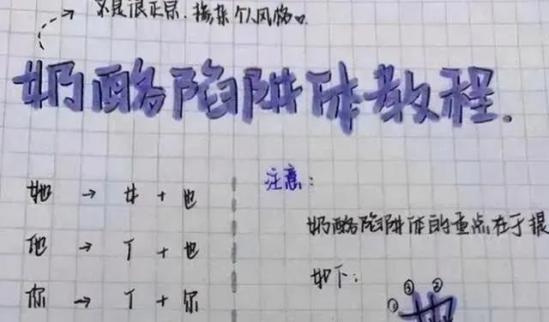 不是很正宗，掺杂个人风格。
奶酪陷阱体教程。
她 → 女 + 也
他 → 亻 + 也
你 → 亻 + 尔
注意：
奶酪陷阱体的重点在于
如下：
① ③ ②